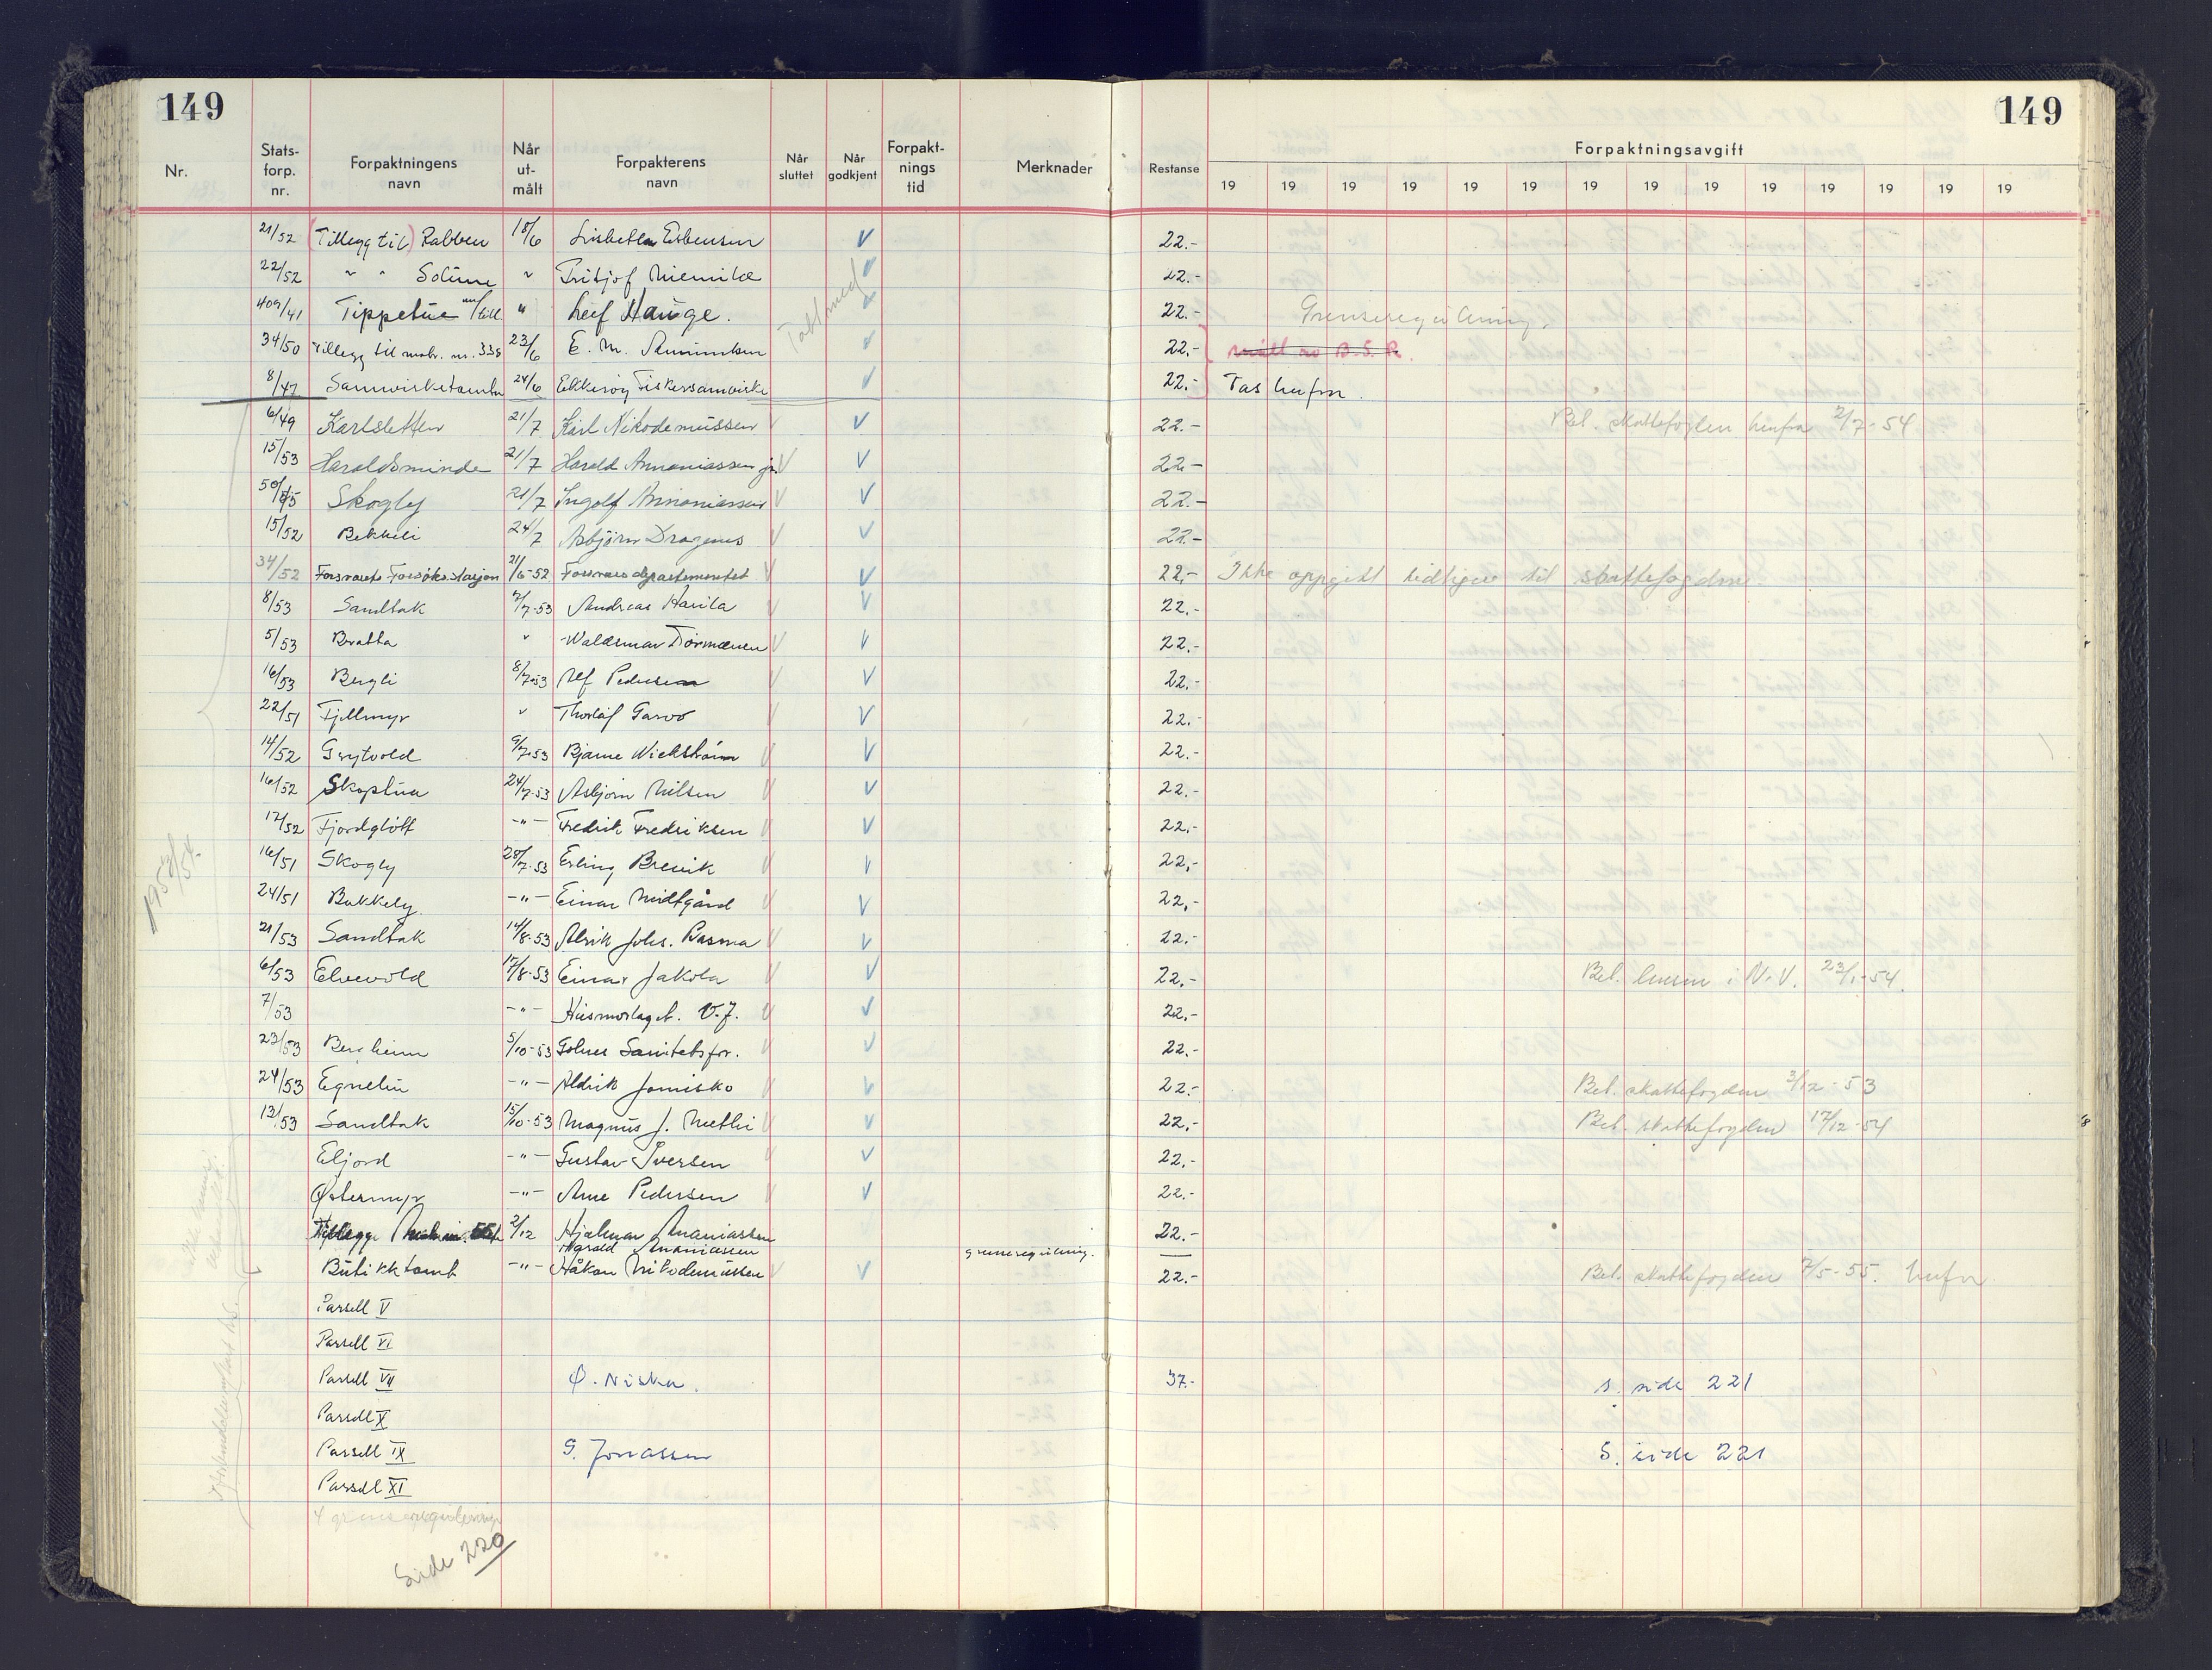 149
149
Nr.
Stats-forp. nr.
Forpaktningens navn
Når ut-målt
Forpakterens navn
Når sluttet
Når godkjent
Forpakt-nings tid
Merknader
Restanse
Forpaktningsavgift
19 19 19 19 19 19 19 19 19 19 19 19 19 19
21/52 (Tillegg til) Rabben 18/6 V 22.-
22/52 " " " Fritjof V 22.-
409/41 Tippetue m/till " Leif Hauge. 22.- Grenseregulering.
34/50 Tillegg til matr. nr. 338 23/6 E. M. 22.- målt av B.S.R.
8/47 Samvirketomta 24/6 Ekkerøy Fiskersamvirke V 22.- Tas herfra.
6/49 Karlsletten 21/7 Karl Nikodemussen V 22.- Bet. skattefogden 2/7-54
15/53 Haraldsminde 21/7 Harald Annaniassen jr. V V 22.-
Skogly 21/7 Ingolf Annaniassen V V 22.-
15/52 Bekkeli 24/7 Asbjørn V V 22.-
34/52 Forsvarets Forsøksstasjon 21/6-52 Forsvarsdepartementet V V 22.- Ikke oppgitt tidligere til skattefogden
8/53 Sandtak 7/7-53 Andreas Havila V V 22.-
5/53 Bratta " Waldemar Tørmænen V V 22.-
16/53 Bergli 8/7-53 Alf Pedersen V V 22.-
22/51 Fjellmyr " Thorlaf Garvo V V 22.-
14/52 Grytvold 9/7-53 Bjarne Wickstrøm V V 22.-
16/52 Skoptua 24/7-53 Asbjørn Nilsen V V 22.-
17/52 Fjordgløtt -"- Fredrik Fredriksen V V 22.-
16/51 Skogly 28/7-53 Erling Brevik V V 22.-
24/51 Bakkely. -"- Einar Midtgård V V 22.-
21/53 Sandtak 14/8-53 Alrik Johs. Basma V V 22.-
6/53 Elvevold 17/8-53 Einar Jakola V V 22.- Bet. i N.V. 23/1-54.
7/53 -"- Husmorlaget. V.J. V V 22.-
23/53 Bergheim 5/10-53 Golnes Sanitetsfor. V V 22.-
24/53 -"- Aldrik Jomisko V V 22.- Bet. skattefogden 3/12-53
13/53 Sandtak 15/10-53 Magnus J. V V 22.- Bet. skattefogden 17/12-54
Eljord -"- Gustav Iversen V V 22.-
Østermyr -"- Arne Pedersen V V 22.-
Tillegg 2/12 Hjalmar Ananiassen 22.-
Harald Ananiassen grenseregulering.
Butikktomt -"- Håkon Nikodemussen V V 22.- Bet. skattefogden 7/5-55. herfra
Parsell V
Parsell VI
Parsell VII Ø. Niska. 37.- s. side 221
Parsell X
Parsell IX S. Jonassen S. side 221
Parsell XI
4 grensereguleringer
Side 220
1953/54.
Tatt med